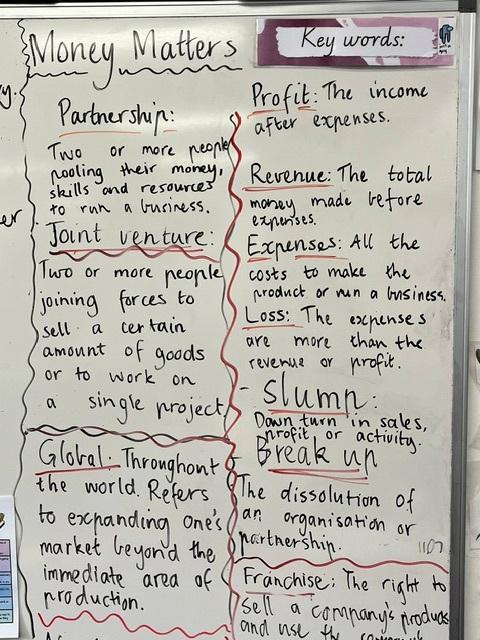 Money Matters
Key words:
Partnership:
Two or more people
pooling their money,
skills and resources
to run a business.
Joint venture:
Two or more people
joining forces to
sell a certain
amount of goods
or to work on
a single project,
Global: Throughout
the world. Refers
to expanding one's
market beyond the
immediate area of
production.
Profit: The income
after expenses.
Revenue: The total
money made before
expenses.
Expenses: All the
costs to make the
product or run a business.
Loss: The expenses
are more than the
revenue or profit.
- Slump:
Down turn in sales,
profit or activity.
- Break up
The dissolution of
an organisation or
partnership.
1107
Franchise: The right to
sell a company's products
and use the